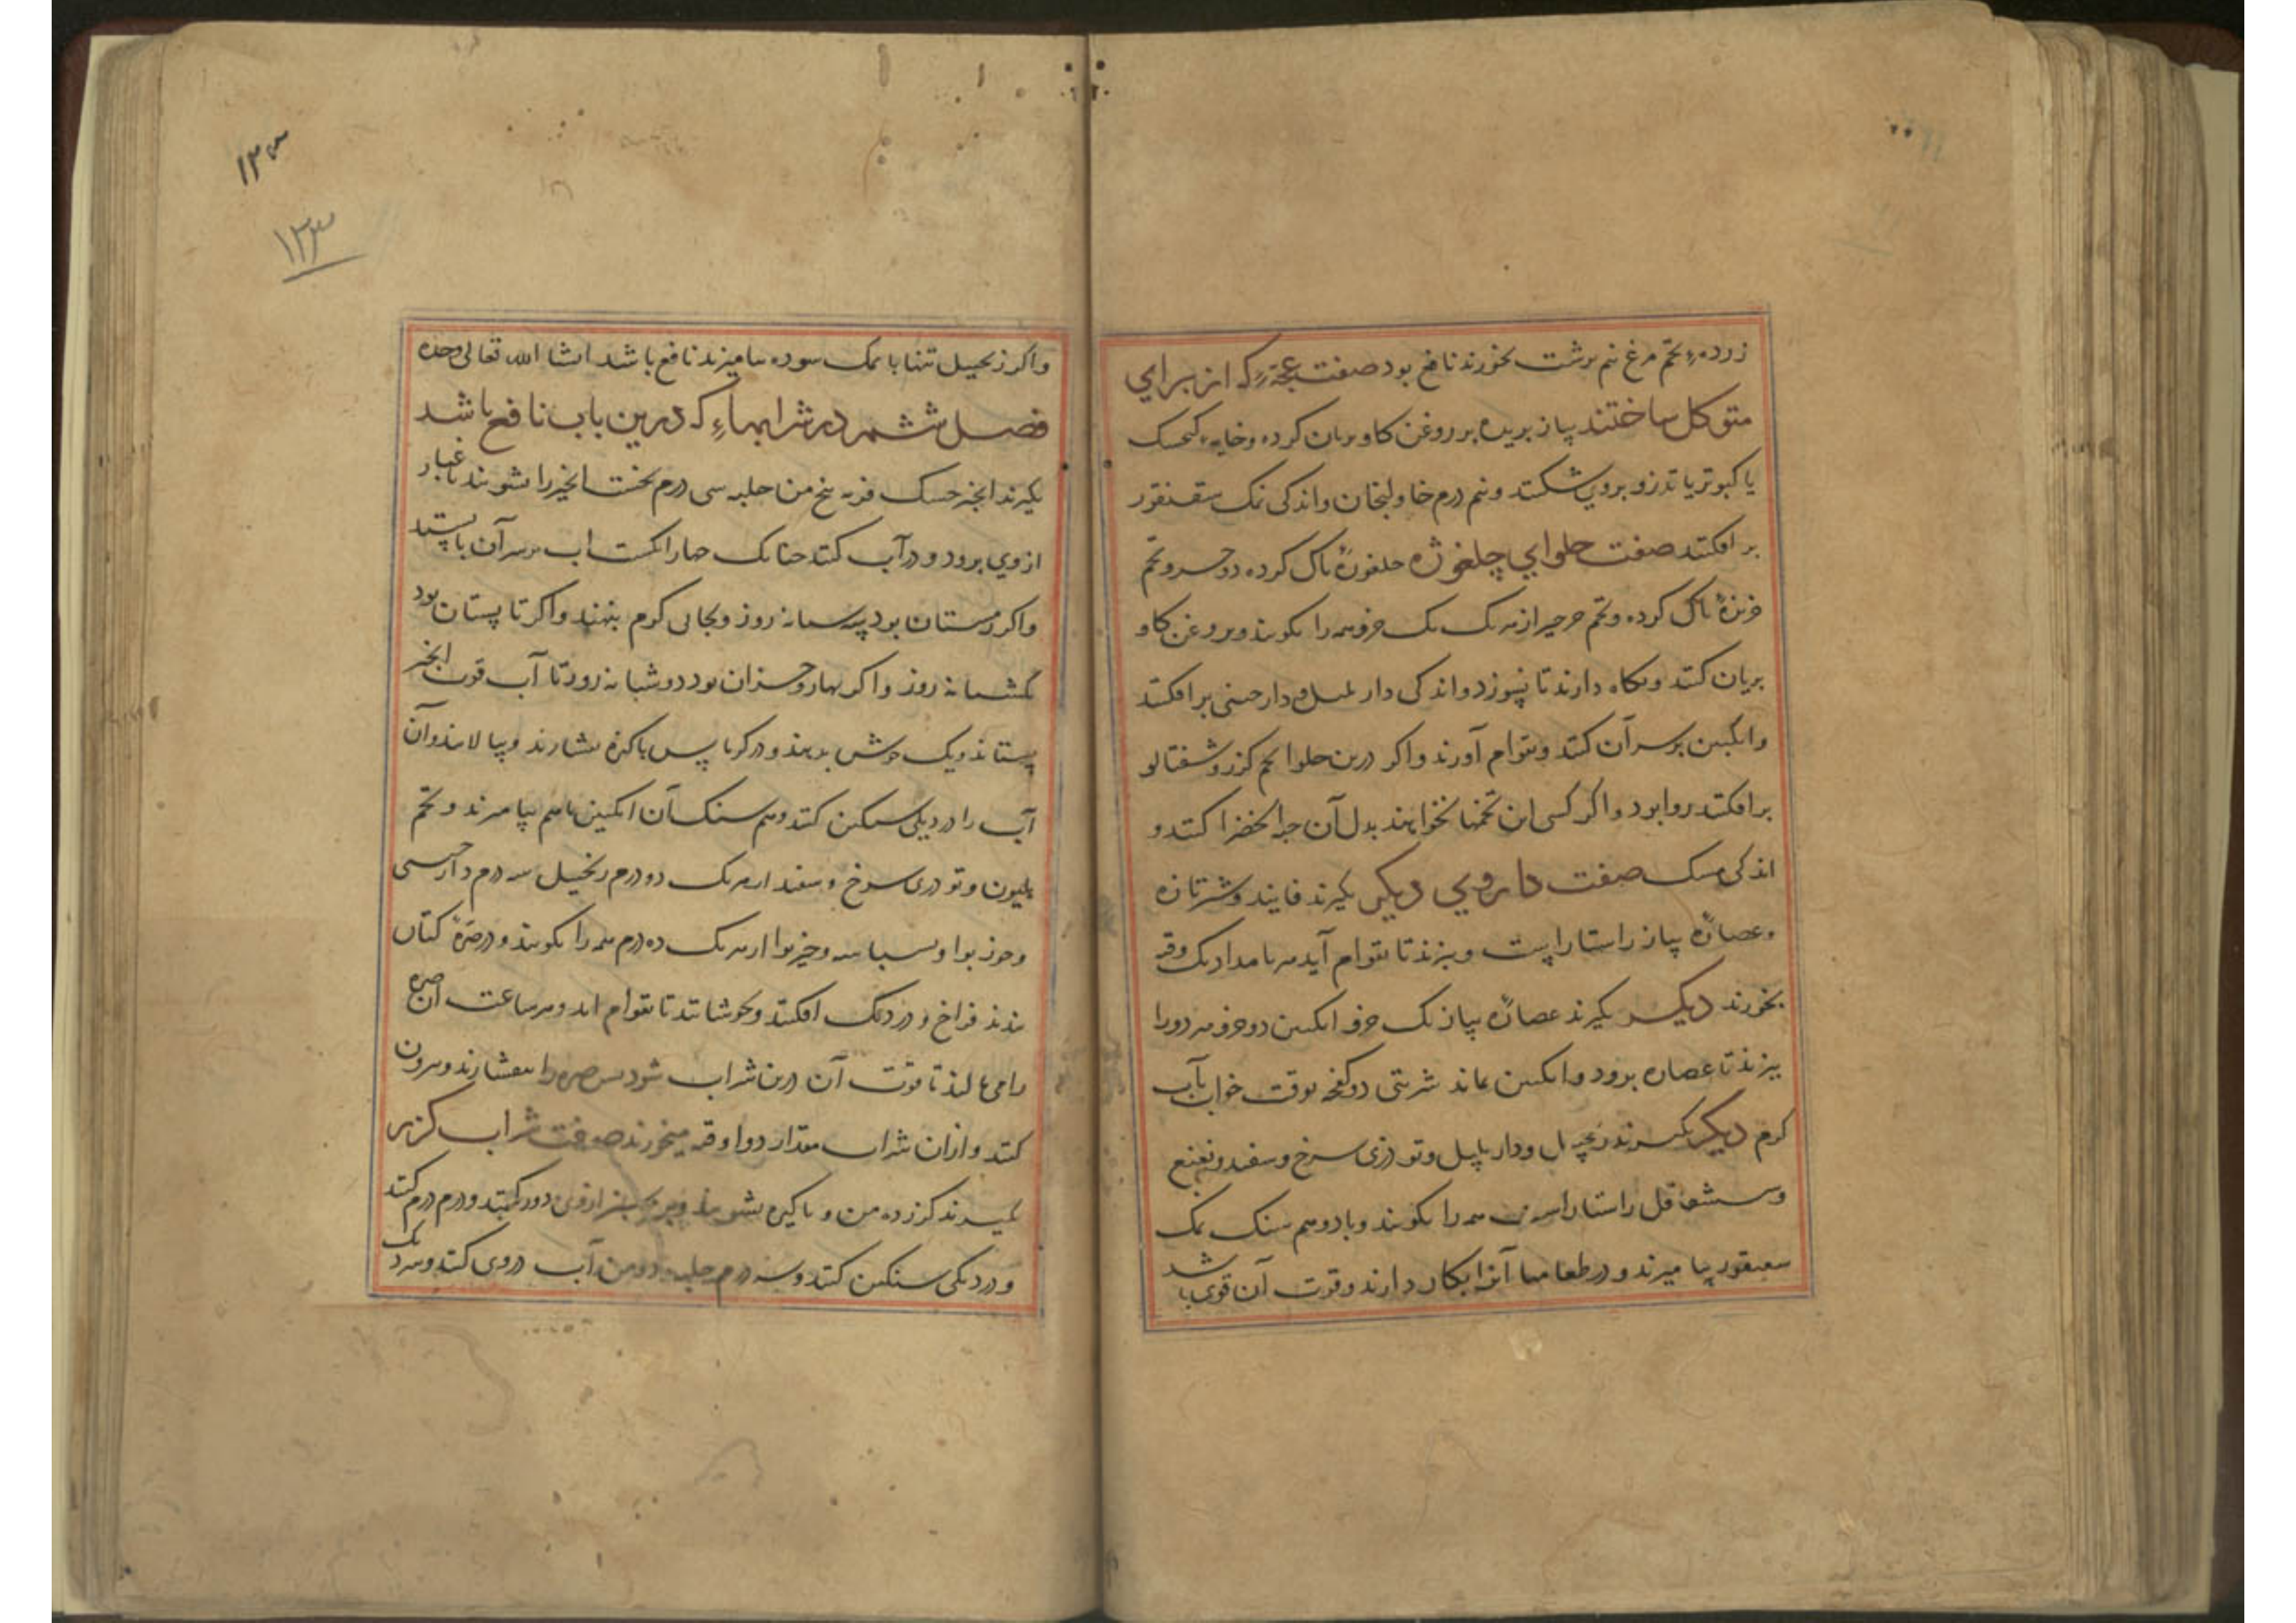 زرده تخم مرغ نیم برشت بخورند نافع بود صفت عجه که از برای
متوکل ساختند پیاز بریده بر روغن کاو بریان کرده و خایه کنجسک
یا کبوتر یا تذرو بروی شکنند و نیم درم خاولنجان و اندکی نمک سقنقور
بر افکنند صفت حلوای چلغوزه جلغوزه پاک کرده دو جزو و تخم
خربزه پاک کرده و تخم جرجیر از هر یک یک جزو همه را بکوبند و بروغن کاو
بریان کنند و نکاه دارند تا نسوزد و اندکی دار پلپل و دارچینی بر افکنند
و انکبین بر سر آن کنند و بقوام آورند و اکر درین حلوا تخم کزر و شفتالو
بر افکنند روا بود و اکر کسی این تخمها نخواهند بدل آن حبه الخضرا کنند و
اندکی مسک صفت داروی دیکر بکیرند فانید و شیر تازه
و عصاره پیاز راستاراست و بپزند تا بقوام آید هر بامداد یک وقیه
بخورند دیکر بکیرند عصاره پیاز یک جزو انکبین دو جزو هر دو را
بپزند تا عصاره برود و انکبین بماند شربتی دو کفچه بوقت خواب بآب
کرم دیکر بکیرند زنجبیل و دار پلپل و تودری سرخ و سفید و نعنع
و شقاقل راستاراست همه را بکوبند و با دو هم سنک نمک
سقنقور بیامیزند و در طعامها آنرا بکار دارند و قوت آن قوی باشد
۱۲۳
۱۲۳
و اکر زنجبیل تنها با نمک سوده بیامیزند نافع باشد انشا الله تعالی وحده
فصل ششم در شرابهاء که درین باب نافع باشد
بکیرند انجیر خشک فربه پنج من حلبه سی درم نخست انجیر را بشویند تا غبار
از وی برود و در آب کنند چنانک چهار انکشت آب بر سر آن باستد
و اکر زمستان بود سه شبانه روز و بجای کرم بنهند و اکر تابستان بود
یکشبانه روز و اکر بهار و خزان بود دو شبانه روز تا آب قوت انجیر
بستاند و یک جوش بدهند و در کرباس پاکیزه بفشارند و بپالایند و آن
آب را در دیکی سنکین کنند و هم سنک آن انکبین با هم بیامیزند و تخم
هلیون و تودری سرخ و سفید از هر یک دو درم زنجبیل سه درم دارچینی
و جوز بوا و بسباسه و خیربوا از هر یک ده درم همه را بکوبند و در صره کتان
بندند فراخ و در دیک افکنند و بجوشانند تا بقوام آید و هر ساعت آن صره
را می مالند تا قوت آن درین شراب شود پس صره را بیفشارند و بیرون
کنند و ازان شراب مقدار دو اوقیه میخورند صفت شراب کزر
بکیرند کزر ده من و پاکیزه بشویند و از وی دور کنند و درم درم کنند
و در دیکی سنکین کنند و سه درم حلبه و دو من آب در وی کنند و سر دیک